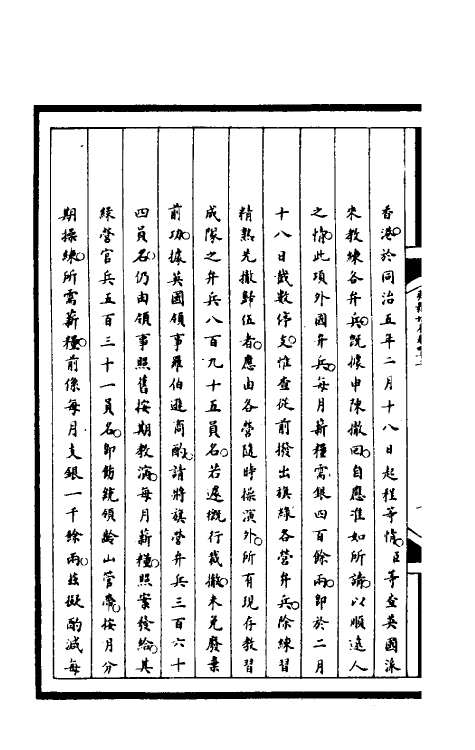 香港。於同治五年二月十八日起程等情。臣等查英國派
來教練各弁兵。既據申陳撤回。自應准如所請。以順遠人
之情。此項外國弁兵。每月薪糧需銀四百餘兩。即於二月
十八日截數停支。惟查從前撥出旗綠各營弁兵。除練習
精熟先撤歸伍者。應由各營隨時操演外。所有現存教習
成隊之弁兵八百九十五員名。若遽概行裁撤。未免廢棄
前功。據英國領事羅伯遜商酌。請將旗營弁兵三百六十
四員名。仍由領事照舊按期教演。每月薪糧。照案發給。其
綠營官兵五百三十一員名。即飭統領齡山管帶。按月分
期操練。所需薪糧。前係每月支銀一千餘兩。茲擬酌減每